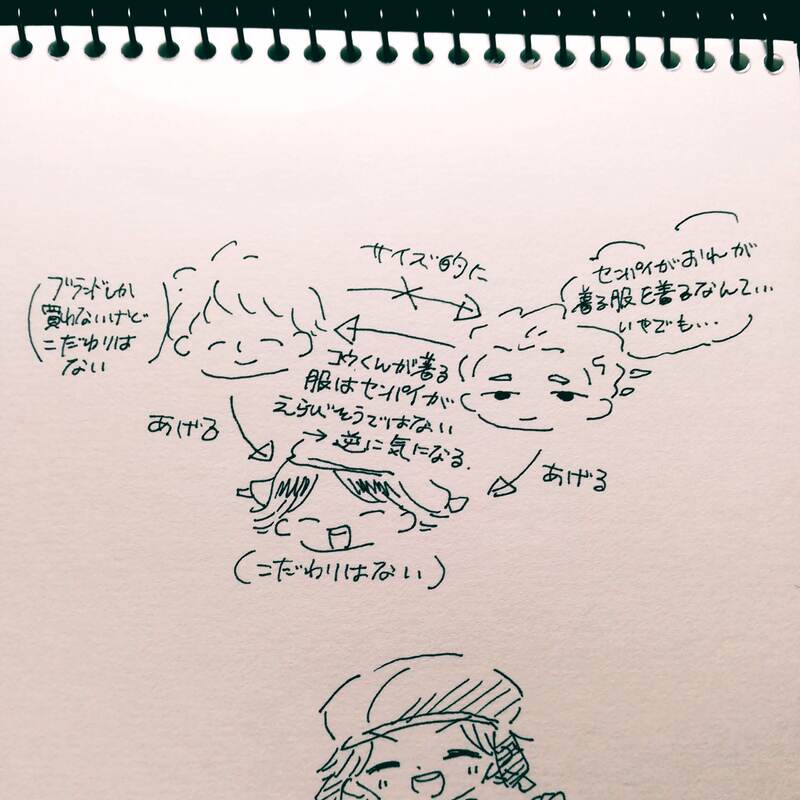 サイズ的に
ブランドしか
買わないけど
こだわりは
ない
センパイがおれが
着る服を着るなんて…
いやでも…
コウくんが着る
服はセンパイが
えらびそうではない
→ 逆に気になる.
あげる
あげる
(こだわりはない)